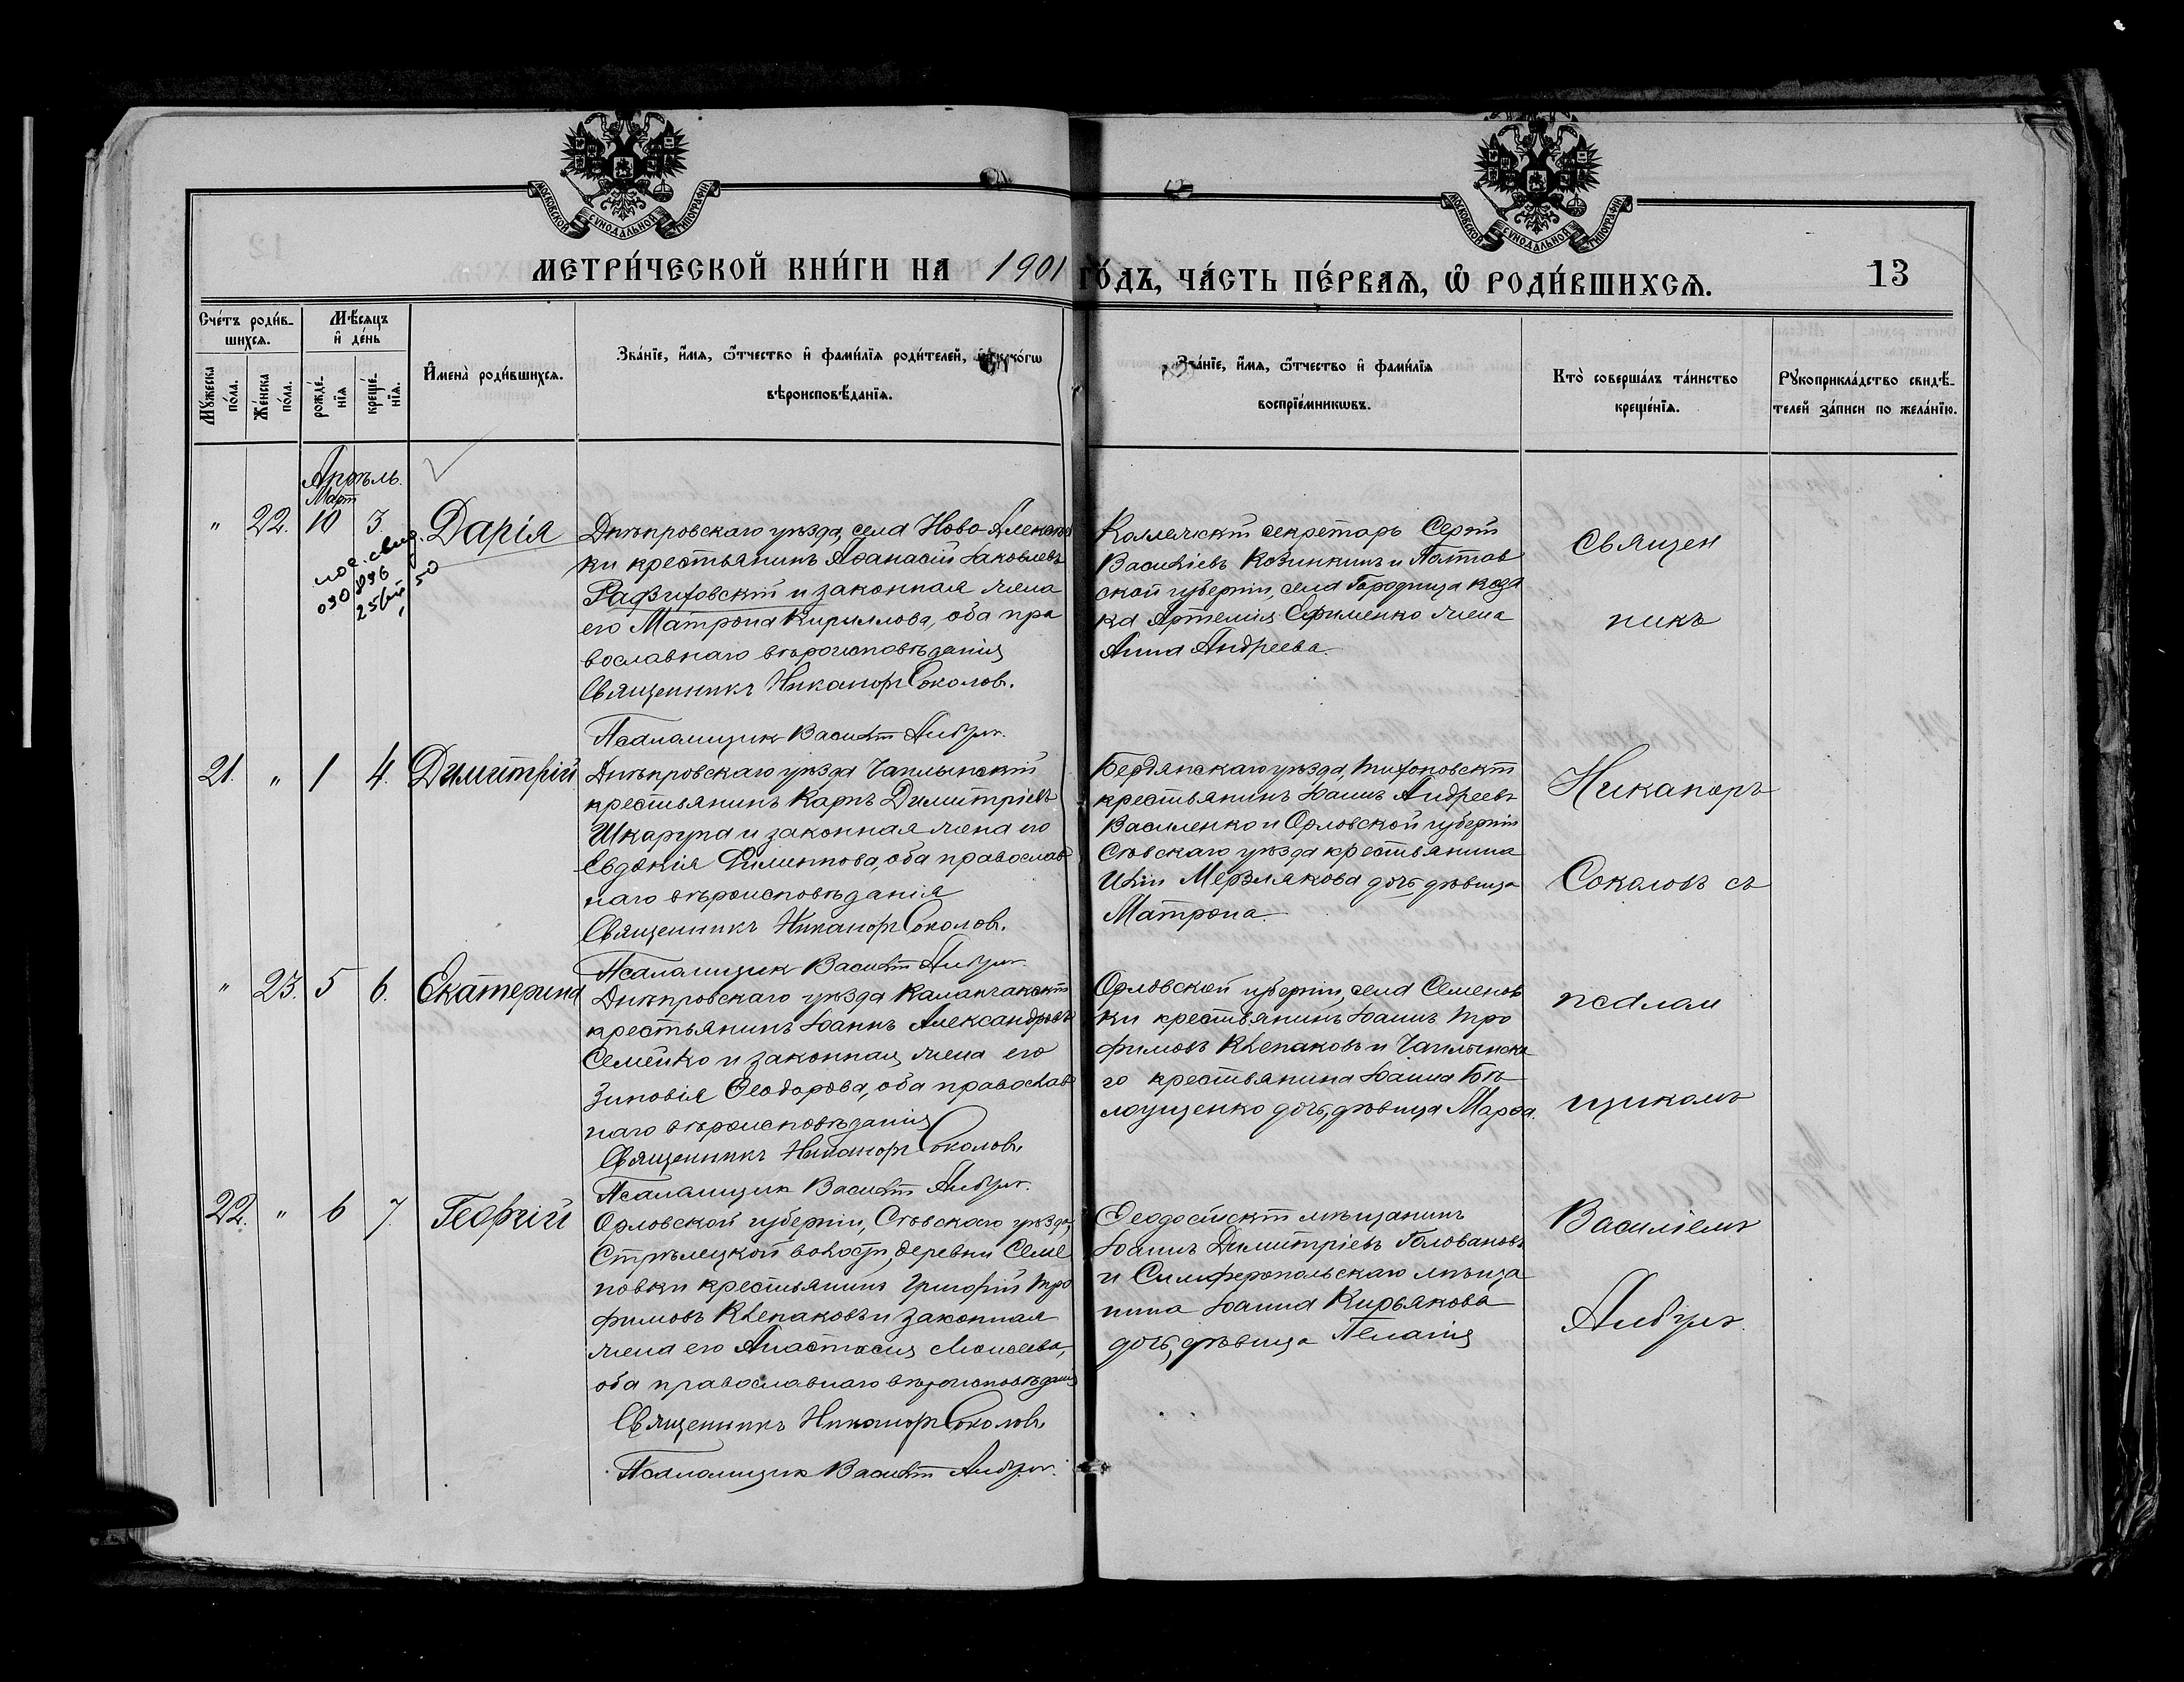 МОСКОВСКОЙ СѴНОДАЛЬНОЙ ТИПОГРАФІИ
МОСКОВСКОЙ СѴНОДАЛЬНОЙ ТИПОГРАФІИ
МЕТРИ́ЧЕСКОЙ КНИ́ГИ НА 1901 ГО́ДЪ, ЧА́СТЬ ПЕ́РВАѦ, Ѡ҆ РОДИ́ВШИХСѦ.
13
Сче́тъ роди́в-
шихсѧ.
Мѣ́сѧцъ
и҆ де́нь
Мꙋ́жеска по́ла.
Же́нска по́ла.
рожде́-нїѧ
креще́-нїѧ.
И҆мена̀ роди́вшихсѧ.
Зва́нїе, и҆́мѧ, ѻ҆́тчество и҆ фамѝлїѧ роди́телей,
вѣроисповѣ́данїѧ.
Зва́нїе, и҆́мѧ, ѻ҆́тчество и҆ фамѝлїѧ
воспрїе́мникѡвъ.
Кто̀ соверша́лъ та́инство
креще́нїѧ.
Рꙋкоприкла́дство свидѣ́-
телей за́писи по жела́нїю.
Апрѣль.
Март
" 22. 10 3. Дарія
Днѣпровскаго уѣзда, села Ново-Алексѣев
ки крестьянинъ Аѳанасій Іаковлевъ
и законная жена
его Матрона Кириллова, оба пра
вославнаго вѣроисповѣданія
Священникъ Никаноръ Соколовъ.
Псаломщик Василій
Коллежскій секретарь Сергій
Василіевъ Козинкинъ и Полтав
ской губерніи, села Городища каза
ка Артемія Ефименко жена
Анна Андреева.
Священ
никъ
21. " 1 4. Димитрій
Днѣпровскаго уѣзда Чаплынскій
крестьянинъ Карпъ Димитріевъ
Шкарупа и законная жена его
Евдокія Филиппова, оба православ
наго вѣроисповѣданія
Священникъ Никаноръ Соколовъ.
Псаломщик Василій
Бердянскаго уѣзда, Тихоновскій
крестьянинъ Іоаннъ Андреевъ
Василенко и Орловской губерніи
Сѣвскаго уѣзда крестьянина
Иліи Мерзлякова дочь, дѣвица
Матрона.
Никаноръ
Соколовъ съ
" 23. 5 6. Екатерина
Днѣпровскаго уѣзда Каланчакскій
крестьянинъ Іоаннъ Александровъ
Семейко и законная жена его
Зиновія Ѳеодорова, оба православ
наго вѣроисповѣданія
Священникъ Никаноръ Соколовъ.
Псаломщик Василій
Орловской губерніи, села Семенов
ки крестьянинъ Іоаннъ Тро
фимовъ Клепаковъ и Чаплынска
го крестьянина Іоанна Бѣ
лоущенко дочь, дѣвица Марѳа.
псалом
щикомъ
22. " 6 7. Георгій
Орловской губерніи, Сѣвскаго уѣзда,
Стрѣлецкой волости, деревни Семе
новки крестьянинъ Григорій Тро
фимовъ Клепаковъ и законная
жена его Анастасія Моисеева,
оба православнаго вѣроисповѣданія
Священникъ Никаноръ Соколовъ.
Псаломщик Василій
Ѳеодосійскій мѣщанинъ
Іоаннъ Димитріевъ Головановъ
и Симферопольскаго мѣща
нина Іоанна Кирьякова
дочь, дѣвица Пелагія
Василіемъ